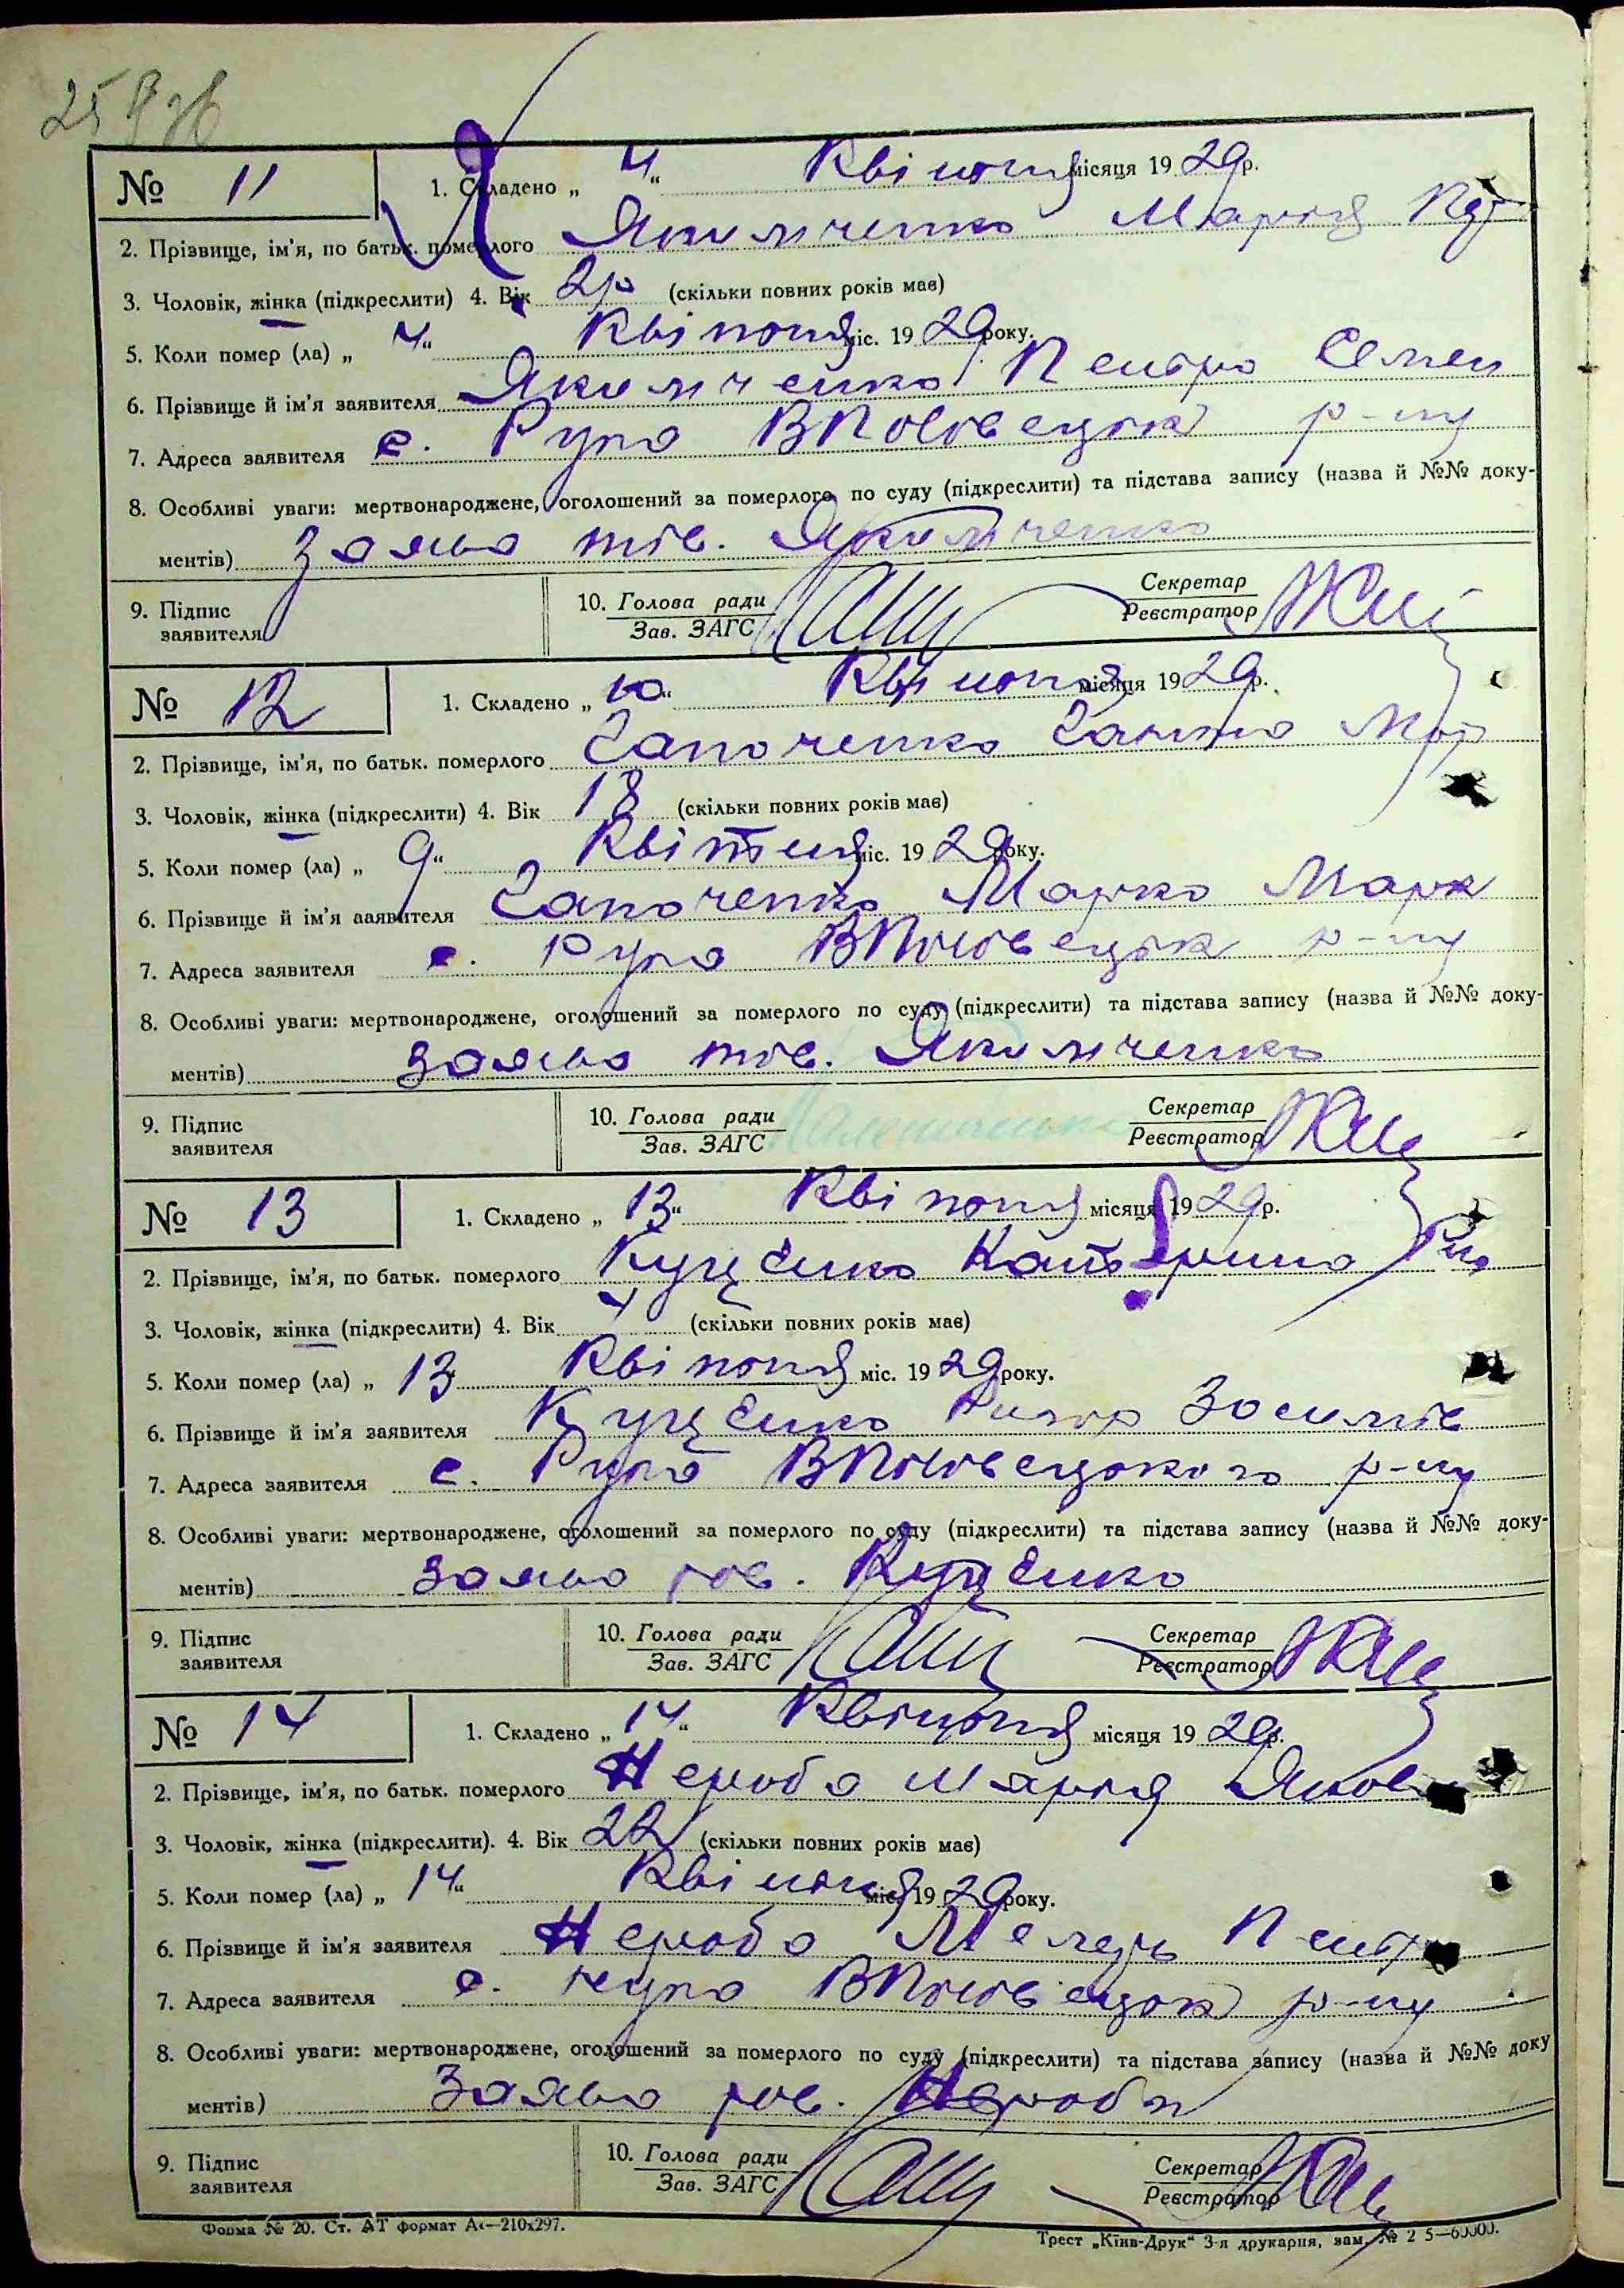 № 11 1. Складено „ 4 “ Квітня місяця 19 29 р.
2. Прізвище, ім'я, по батьк. померлого Якимченко Марія
3. Чоловік, жінка (підкреслити) 4. Вік 2р (скільки повних років має)
5. Коли помер (ла) „ 4 “ Квітня міс. 19 29 року.
6. Прізвище й ім'я заявителя Якимченко Петро Семен
7. Адреса заявителя с. Руда ВПоловецьк р-ну
8. Особливі уваги: мертвонароджене, оголошений за померлого по суду (підкреслити) та підстава запису (назва й №№ доку-
ментів) Заява тов. Якимченко
9. Підпис заявителя 10. Голова ради Зав. ЗАГС Секретар Реєстратор
№ 12 1. Складено „ 10 “ Квітня місяця 19 29 р.
2. Прізвище, ім'я, по батьк. померлого Мар
3. Чоловік, жінка (підкреслити) 4. Вік 18 (скільки повних років має)
5. Коли помер (ла) „ 9 “ Квітня міс. 19 29 року.
6. Прізвище й ім'я заявителя Марко Марк
7. Адреса заявителя с. Руда ВПоловецьк р-ну
8. Особливі уваги: мертвонароджене, оголошений за померлого по суду (підкреслити) та підстава запису (назва й №№ доку-
ментів) заява тов. Якимченко
9. Підпис заявителя 10. Голова ради Зав. ЗАГС Секретар Реєстратор
№ 13 1. Складено „ 13 “ Квітня місяця 19 29 р.
2. Прізвище, ім'я, по батьк. померлого Куценко Катерина
3. Чоловік, жінка (підкреслити) 4. Вік 4 (скільки повних років має)
5. Коли помер (ла) „ 13 Квітня міс. 19 29 року.
6. Прізвище й ім'я заявителя Куценко
7. Адреса заявителя с. Руда ВПоловецького р-ну
8. Особливі уваги: мертвонароджене, оголошений за померлого по суду (підкреслити) та підстава запису (назва й №№ доку-
ментів) заява тов. Куценко
9. Підпис заявителя 10. Голова ради Зав. ЗАГС Секретар Реєстратор
№ 14 1. Складено „ 14 “ Квітня місяця 19 29 р.
2. Прізвище, ім'я, по батьк. померлого Нероба Марія Яков
3. Чоловік, жінка (підкреслити). 4. Вік 22 (скільки повних років має)
5. Коли помер (ла) „ 14 “ Квітня міс. 19 29 року.
6. Прізвище й ім'я заявителя Нероба Петр
7. Адреса заявителя с. Руда ВПоловецьк р-ну
8. Особливі уваги: мертвонароджене, оголошений за померлого по суду (підкреслити) та підстава запису (назва й №№ доку
ментів) Заява тов. Нероби
9. Підпис заявителя 10. Голова ради Зав. ЗАГС Секретар Реєстратор
Форма № 20. Ст. АТ формат А4—210х297. Трест „Київ-Друк“ 3-я друкарня, зам. №